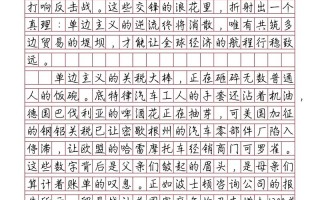 打响反击战。这些交锋的浪花里，折射出一个
真理：单边主义的逆流终将消散，唯有共筑多
边贸易的堤坝，才能让全球经济的航程行稳致
远。
单边主义的关税大棒，正在砸碎无数普通
人的饭碗。底特律汽车工人的手套还沾着机油，
德国巴伐利亚的啤酒花正在抽芽，可美国加征
的钢铝关税已让密歇根州的汽车零部件厂陷入
停滞，让欧盟的哈雷摩托车经销商门可罗雀。
这些数字背后是父亲们皱起的眉头，是母亲们
算计着账单的叹息。正如波士顿咨询公司的报